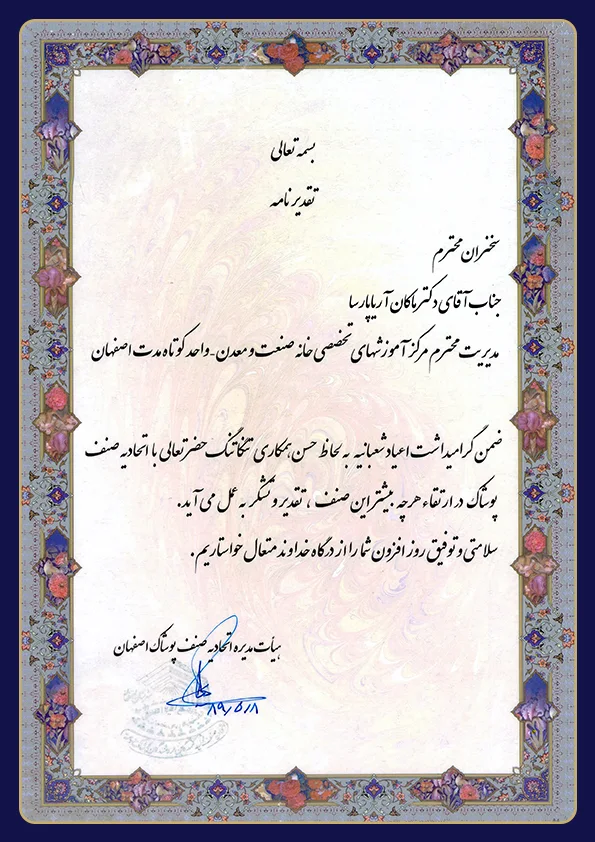 بسمه تعالی
تقدیر نامه
سخنران محترم
جناب آقای دکتر ماکان آریاپارسا
مدیریت محترم مرکز آموزشهای تخصصی خانه صنعت و معدن - واحد کوتاه مدت اصفهان
ضمن گرامیداشت اعیاد شعبانیه به لحاظ حسن همکاری تنگاتنگ حضرتعالی با اتحادیه صنف
پوشاک در ارتقاء هرچه بیشتر این صنف ، تقدیر و تشکر به عمل می آید.
سلامتی و توفیق روز افزون شما را از درگاه خداوند متعال خواستاریم .
هیأت مدیره اتحادیه صنف پوشاک اصفهان
۸۹/۵/۸